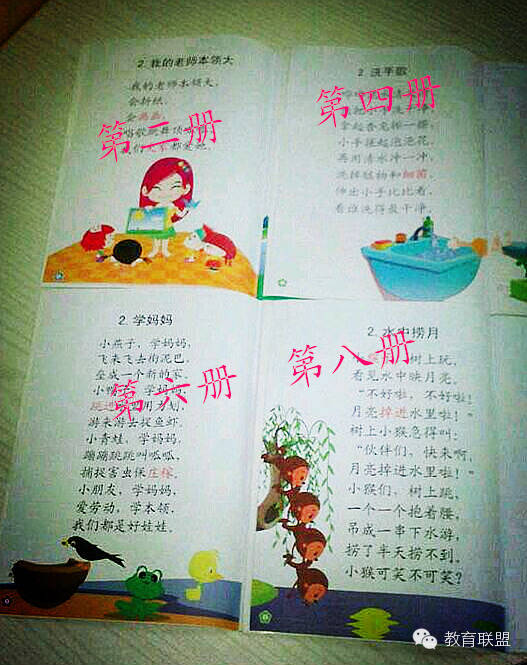 2. 我的老师本领大
我的老师本领大，
会折纸，
会画画，
唱歌跳舞顶
我们大家都爱她。
第二册
2. 洗手歌
拿起香皂搓一搓，
小手搓起泡泡花。
再用清水冲一冲，
洗掉脏物和细菌。
伸出小手比比看，
看谁洗得最干净。
第四册
2. 学妈妈
小燕子，学妈妈，
飞来飞去衔泥巴，
垒成一个新的家。
小鸭 学妈妈，
跳进 用力划，
游来游去捉鱼虾。
小青蛙，学妈妈，
蹦蹦跳跳叫呱呱，
捕捉害虫保庄稼。
小朋友，学妈妈，
爱劳动，学本领，
我们都是好娃娃。
第六册
2. 水中捞月
树上玩，
看见水中映月亮，
“不好啦，不好啦！
月亮掉进水里啦！”
树上小猴急得叫：
“伙伴们，快来啊，
月亮掉进水里啦！”
小猴们，树上跳，
一个一个抱着腰，
吊成一串下水游，
捞了半天捞不到，
小猴可笑不可笑？
第八册
教育联盟